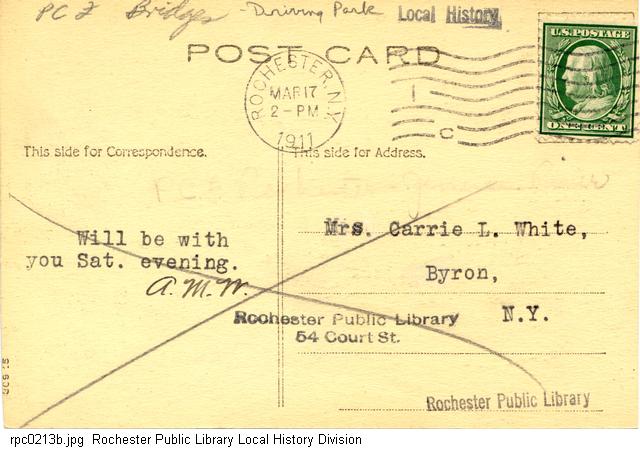 PC 2 Bridges - Driving Park Local History
POST CARD
U.S. POSTAGE
ONE CENT
ROCHESTER, N.Y.
MAR 17
2 - PM
1911
1
C
This side for Correspondence.
This side for Address.
Will be with
you Sat. evening.
A. M. W.
Mrs. Carrie L. White,
Byron,
N.Y.
Rochester Public Library
54 Court St.
Rochester Public Library
rpc0213b.jpg Rochester Public Library Local History Division